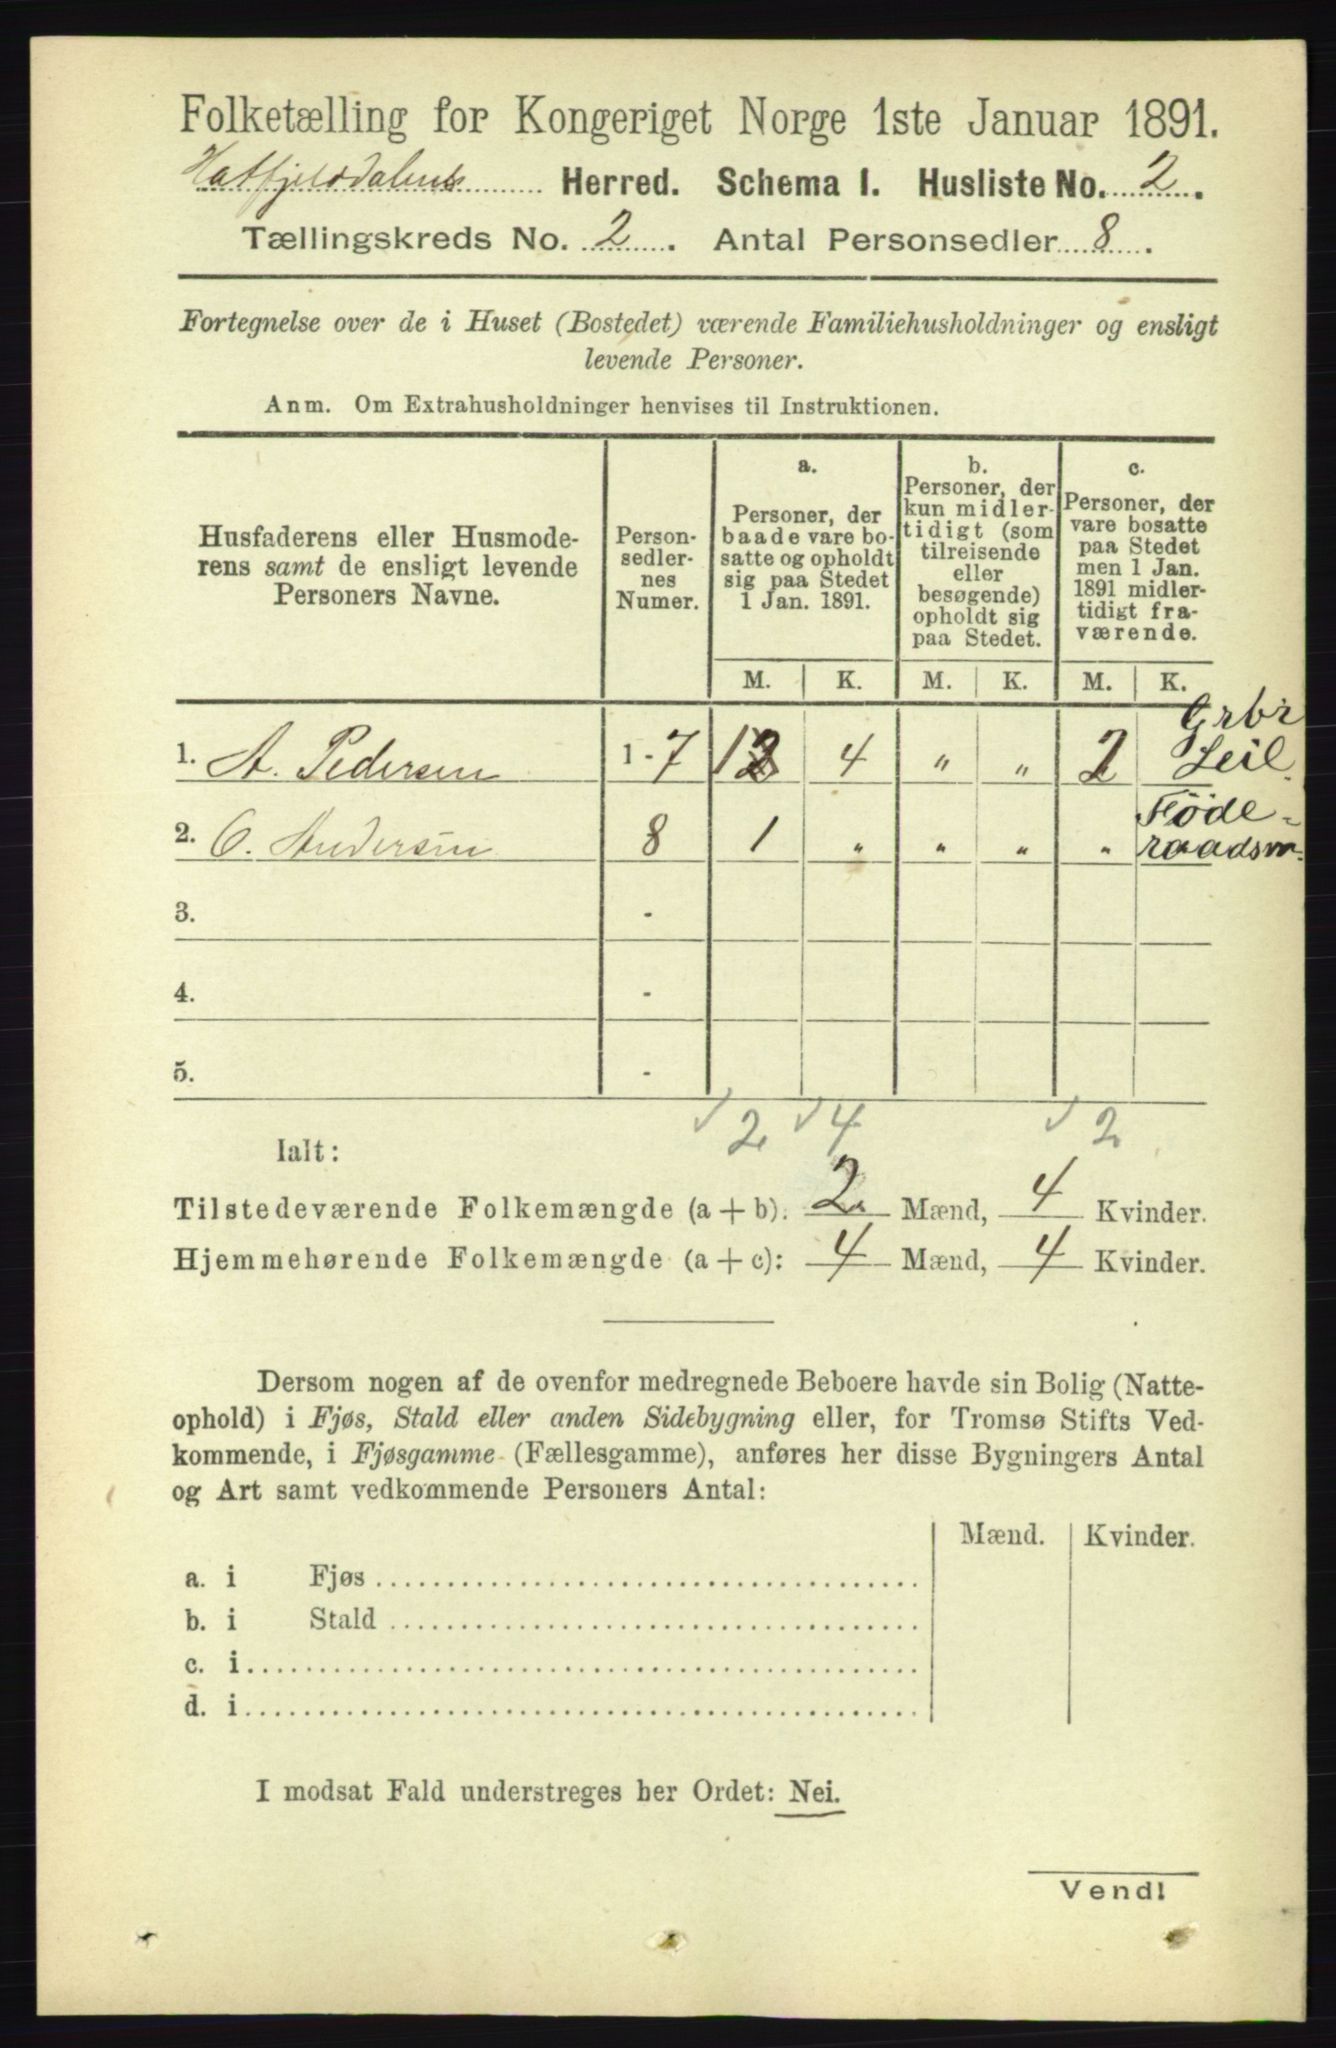 Folketælling for Kongeriget Norge 1ste Januar 1891.
Hatfjelddalens Herred. Schema I. Husliste No. 2.
Tællingskreds No. 2. Antal Personsedler 8.
Fortegnelse over de i Huset (Bostedet) værende Familiehusholdninger og ensligt
levende Personer.
Anm. Om Extrahusholdninger henvises til Instruktionen.
Husfaderens eller Husmode-
rens samt de ensligt levende
Personers Navne.
Person-
sedler-
nes
Numer.
a.
Personer, der
baade vare bo-
satte og opholdt
sig paa Stedet
1 Jan. 1891.
b.
Personer, der
kun midler-
tidigt (som
tilreisende
eller
besøgende)
opholdt sig
paa Stedet.
c.
Personer, der
vare bosatte
paa Stedet
men 1 Jan.
1891 midler-
tidigt fra-
værende.
M. K. M. K. M. K.
1. A. Pedersen 1-7 1 4 " " 2 Grbr
Leil.
2. O. Andersen 8 1 " " " " Föde-
raadsm.
3. -
4. -
5. -
2 4 2
Ialt:
Tilstedeværende Folkemængde (a + b): 2 Mænd, 4 Kvinder.
Hjemmehørende Folkemængde (a + c): 4 Mænd, 4 Kvinder.
Dersom nogen af de ovenfor medregnede Beboere havde sin Bolig (Natte-
ophold) i Fjøs, Stald eller anden Sidebygning eller, for Tromsø Stifts Ved-
kommende, i Fjøsgamme (Fællesgamme), anføres her disse Bygningers Antal
og Art samt vedkommende Personers Antal:
Mænd. Kvinder.
a. i Fjøs
b. i Stald
c. i
d. i
I modsat Fald understreges her Ordet: Nei.
Vend!